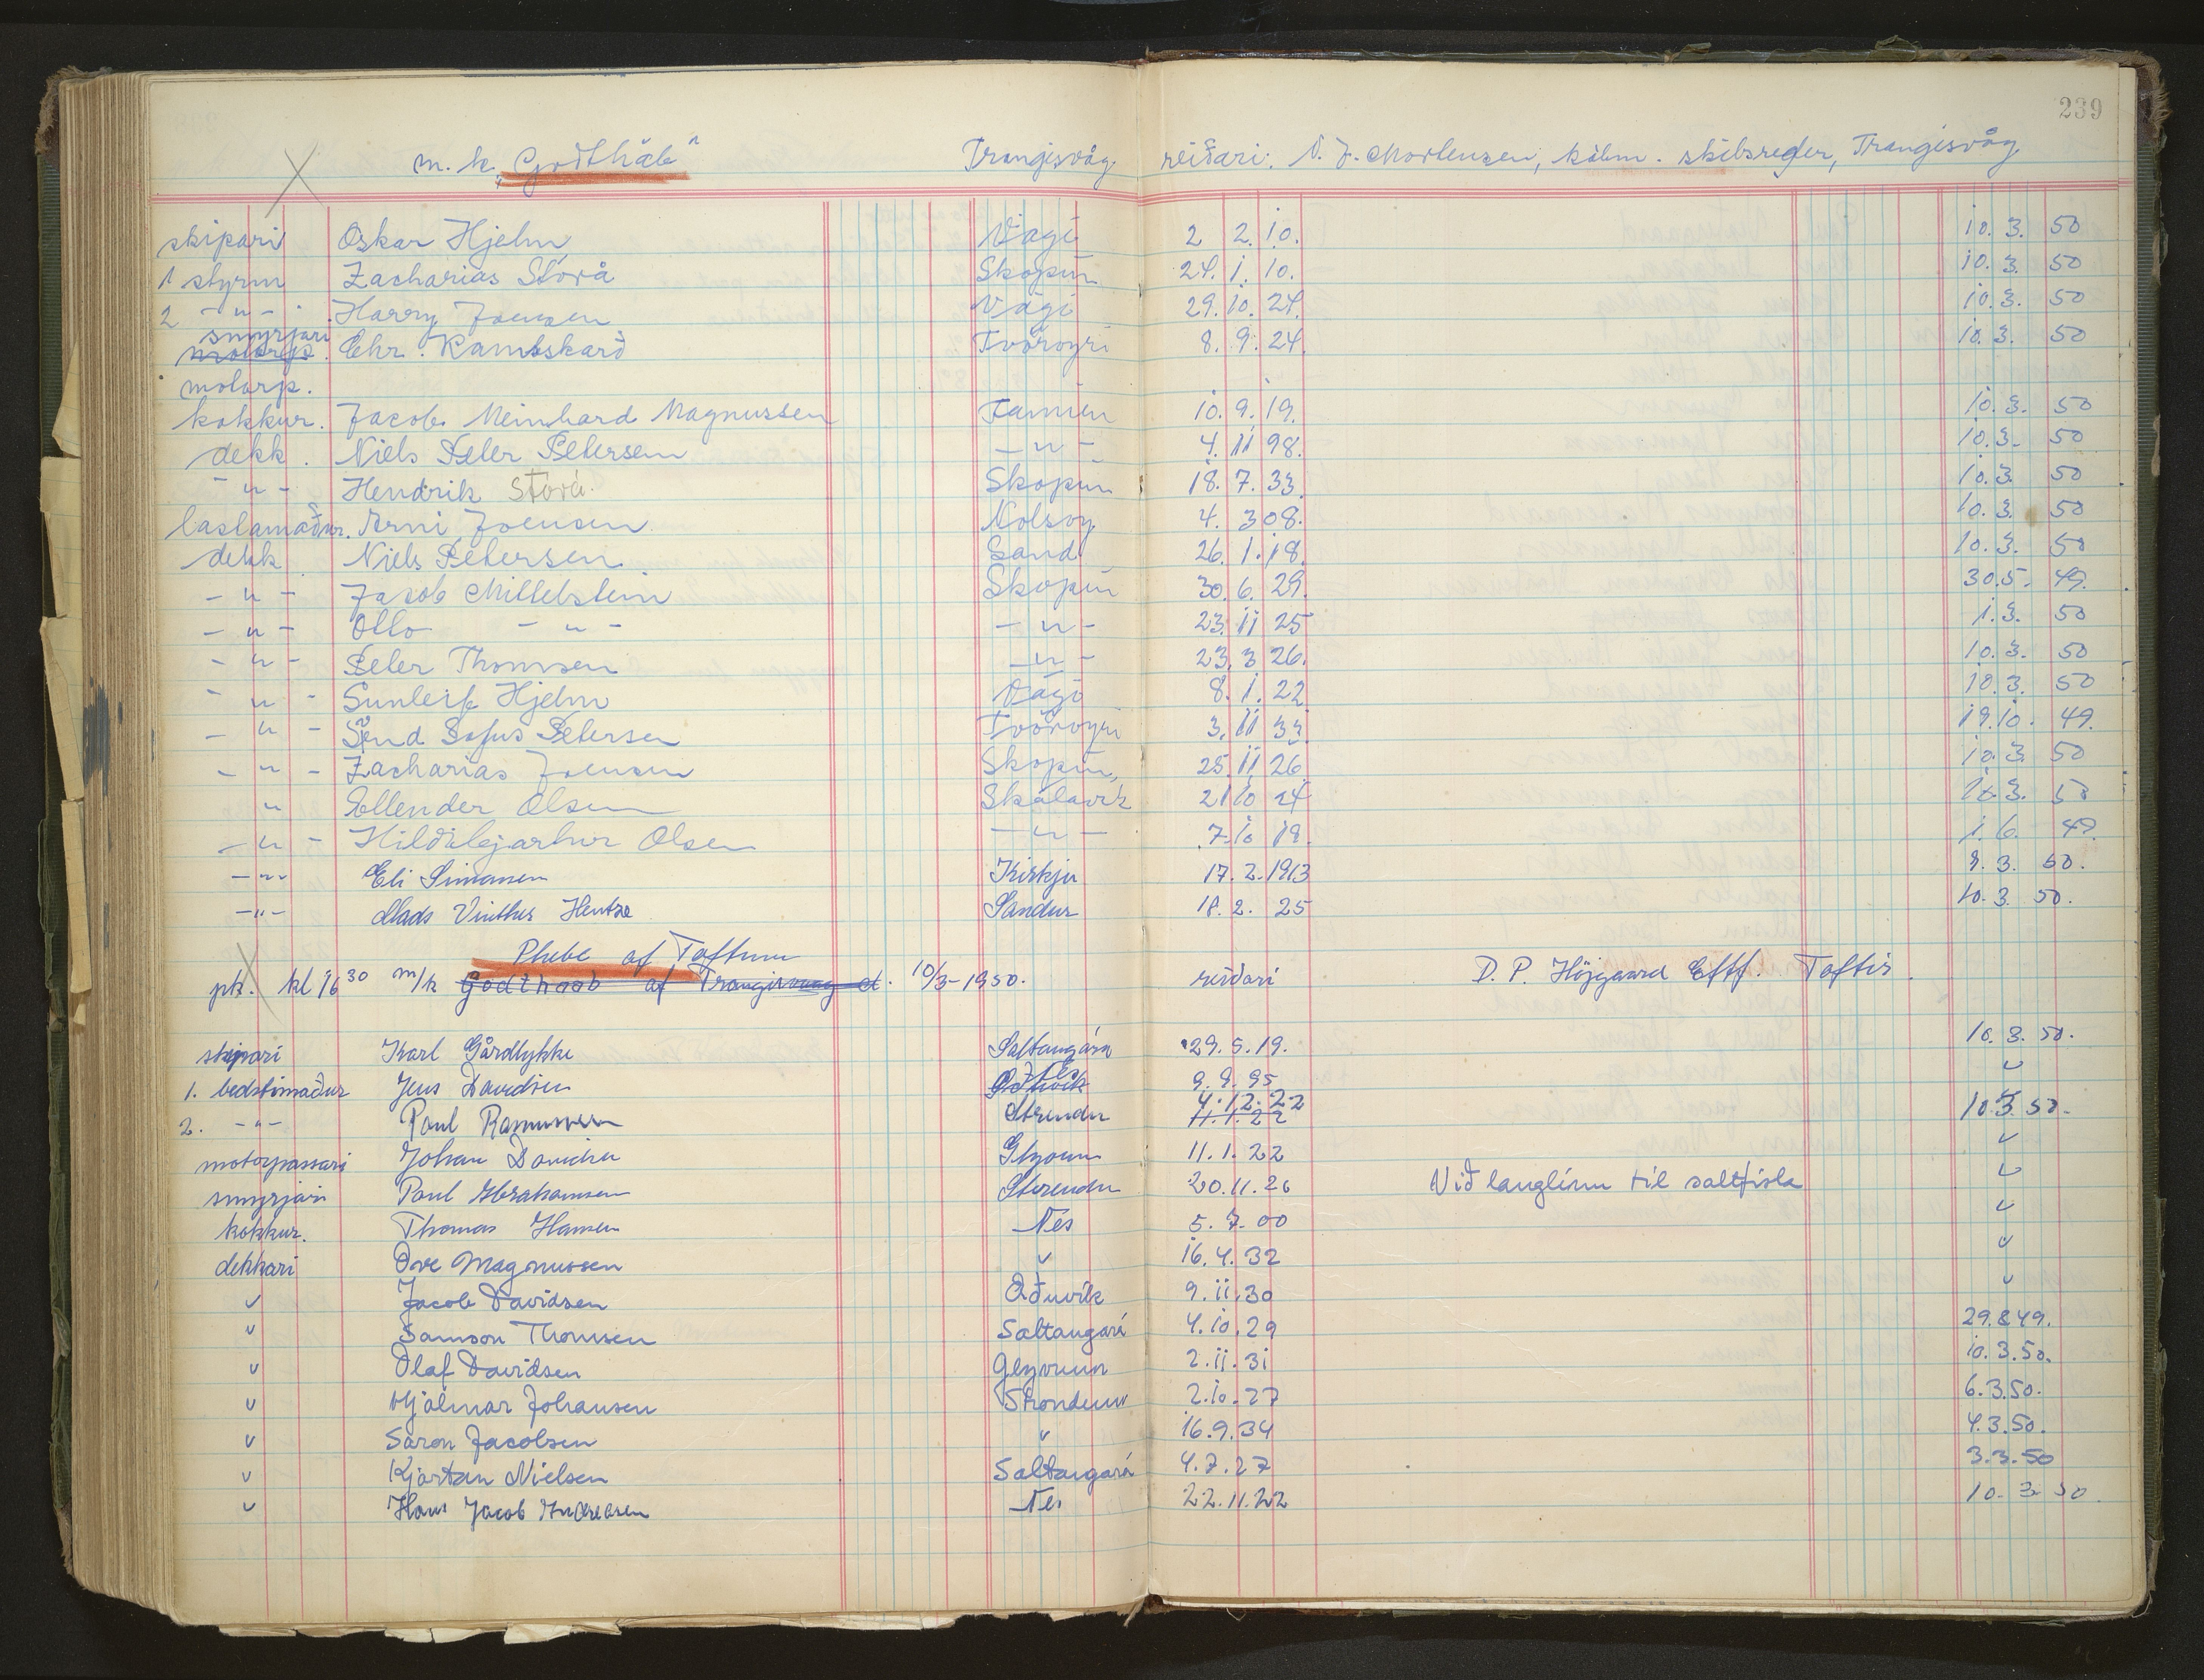 239
m. k. „Godthåb" Trangisvåg reiðari: N. J. Mortensen, købm. skibsreder, Trangisvåg
skipari Oskar Hjelm Vági 2 2. 10. 10. 3. 50
1 styrm Zacharias Stórá Skopun 24. 1. 10. 10. 3. 50
2 -"- Harry Joensen Vági 29. 10. 24. 10. 3. 50
smyrjari Chr. Ramsskarð Tvöroyri 8. 9. 24. 10. 3. 50
motorp.
kokkur. Jacob Meinhard Magnussen Famien 10. 9. 19. 10. 3. 50
dekk. Niels Peter Petersen -"- 4. 11 98. 10. 3. 50
-"- Hendrik Stórá. Skopun 18. 7. 33. 10. 3. 50
lastamaður. Arni Joensen Nolsoy 4. 3 08. 10. 3. 50
dekk Niels Petersen Sand 26. 1. 18. 10. 3. 50
-"- Jacob Mittelstein Skopun 30. 6. 29. 30. 5. 49.
-"- Otto -"- -"- 23. 11 25 1. 3. 50
-"- Peter Thomsen -"- 23. 3 26. 10. 3. 50
-"- Sunleif Hjelm Vági 8. 1. 22 10. 3. 50
-"- Sofus Petersen Tvöroyri 3. 11 33 19. 10. 49.
-"- Zacharias Joensen Skopun, 25. 11 26 10. 3. 50
" Ellender Olsen Skálavík 21 10 24 10. 3. 50
-"- Hildibjartur Olsen -"- 7. 10 18. 1. 6. 49
-"- Eli Simonsen Kirkju 17. 2. 1913 9. 3. 50.
-"- Mads Vinther Hentze Sandur 18. 2. 25 10. 3. 50.
Phebe af Toftum
pk. kl 16 30 m/k Godthaab af Trangisvaag 10/3-1950. reiðari D. P. Højgaard Eftf. Toftir.
skipari Karl Gårdlykke Saltangará 29. 5. 19. 10. 3. 50.
1. bedstimaður Jens Davidsen 9. 9. 95 "
2. -"- Poul Rasmussen Strendur 4. 12. 22 10. 3. 50.
11. 1. 22
motorpassari Johan Davidsen Glyvur 11. 1. 22 "
smyrjari Poul Abrahamsen Strendur 20. 11. 26 Við langlínu til saltfisk "
kokkur. Thomas Hansen Nes 5. 7. 00 "
dekkari Ove Magnussen " 16. 4. 32 "
" Jacob Davidsen Øðuvík 9. 11. 30 "
" Samson Thomsen Saltangará 4. 10. 29 29. 8 49.
" Olaf Davidsen Glyvrum 2. 11. 31 10. 3. 50.
" Hjalmar Johansen Strondum 2. 10. 27 6. 3. 50.
" Saron Jacobsen " 16. 9. 34 4. 3. 50.
" Kjartan Nielsen Saltangará 4. 7. 27 3. 3. 50
" Hans Jacob Andreasen Nes 22. 11. 22 10. 3. 50.